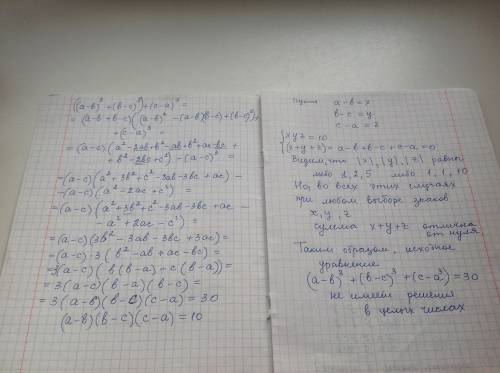 (a-b)³+(b-c)³+(c-a)³=
=(a-b+b-c)((a-b)²-(a-b)(b-c)+(b-c)²)+
+(c-a)³=
=(a-c)(a²-2ab+b²-ab+b²+ac-bc+
+b²-2bc+c²)-(a-c)³=
=(a-c)(a²+3b²+c²-3ab-3bc+ac)-
-(a-c)(a²-2ac+c²)=
=(a-c)(a²+3b²+c²-3ab-3bc+ac-
-a²+2ac-c²)=
=(a-c)(3b²-3ab-3bc+3ac)=
=(a-c)·3(b²-ab+ac-bc)=
=3(a-c)(b(b-a)-c(b-a))=
=3(a-c)(b-a)(b-c)=
=3(a-b)(b-c)(c-a)=30
(a-b)(b-c)(c-a)=10
Пусть a-b=x
b-c=y
c-a=z
{xyz=10
{x+y+z=a-b+b-c+c-a=0
Видим, что |x|,|y|,|z| равны
либо 1,2,5 либо 1,1,10
Но, во всех этих случаях
при любом выборе знаков
x,y,z
сумма x+y+z отлична
от нуля
Таким образом, исходное
уравнение
(a-b)³+(b-c)³+(c-a³)=30
не имеет решения
в целых числах